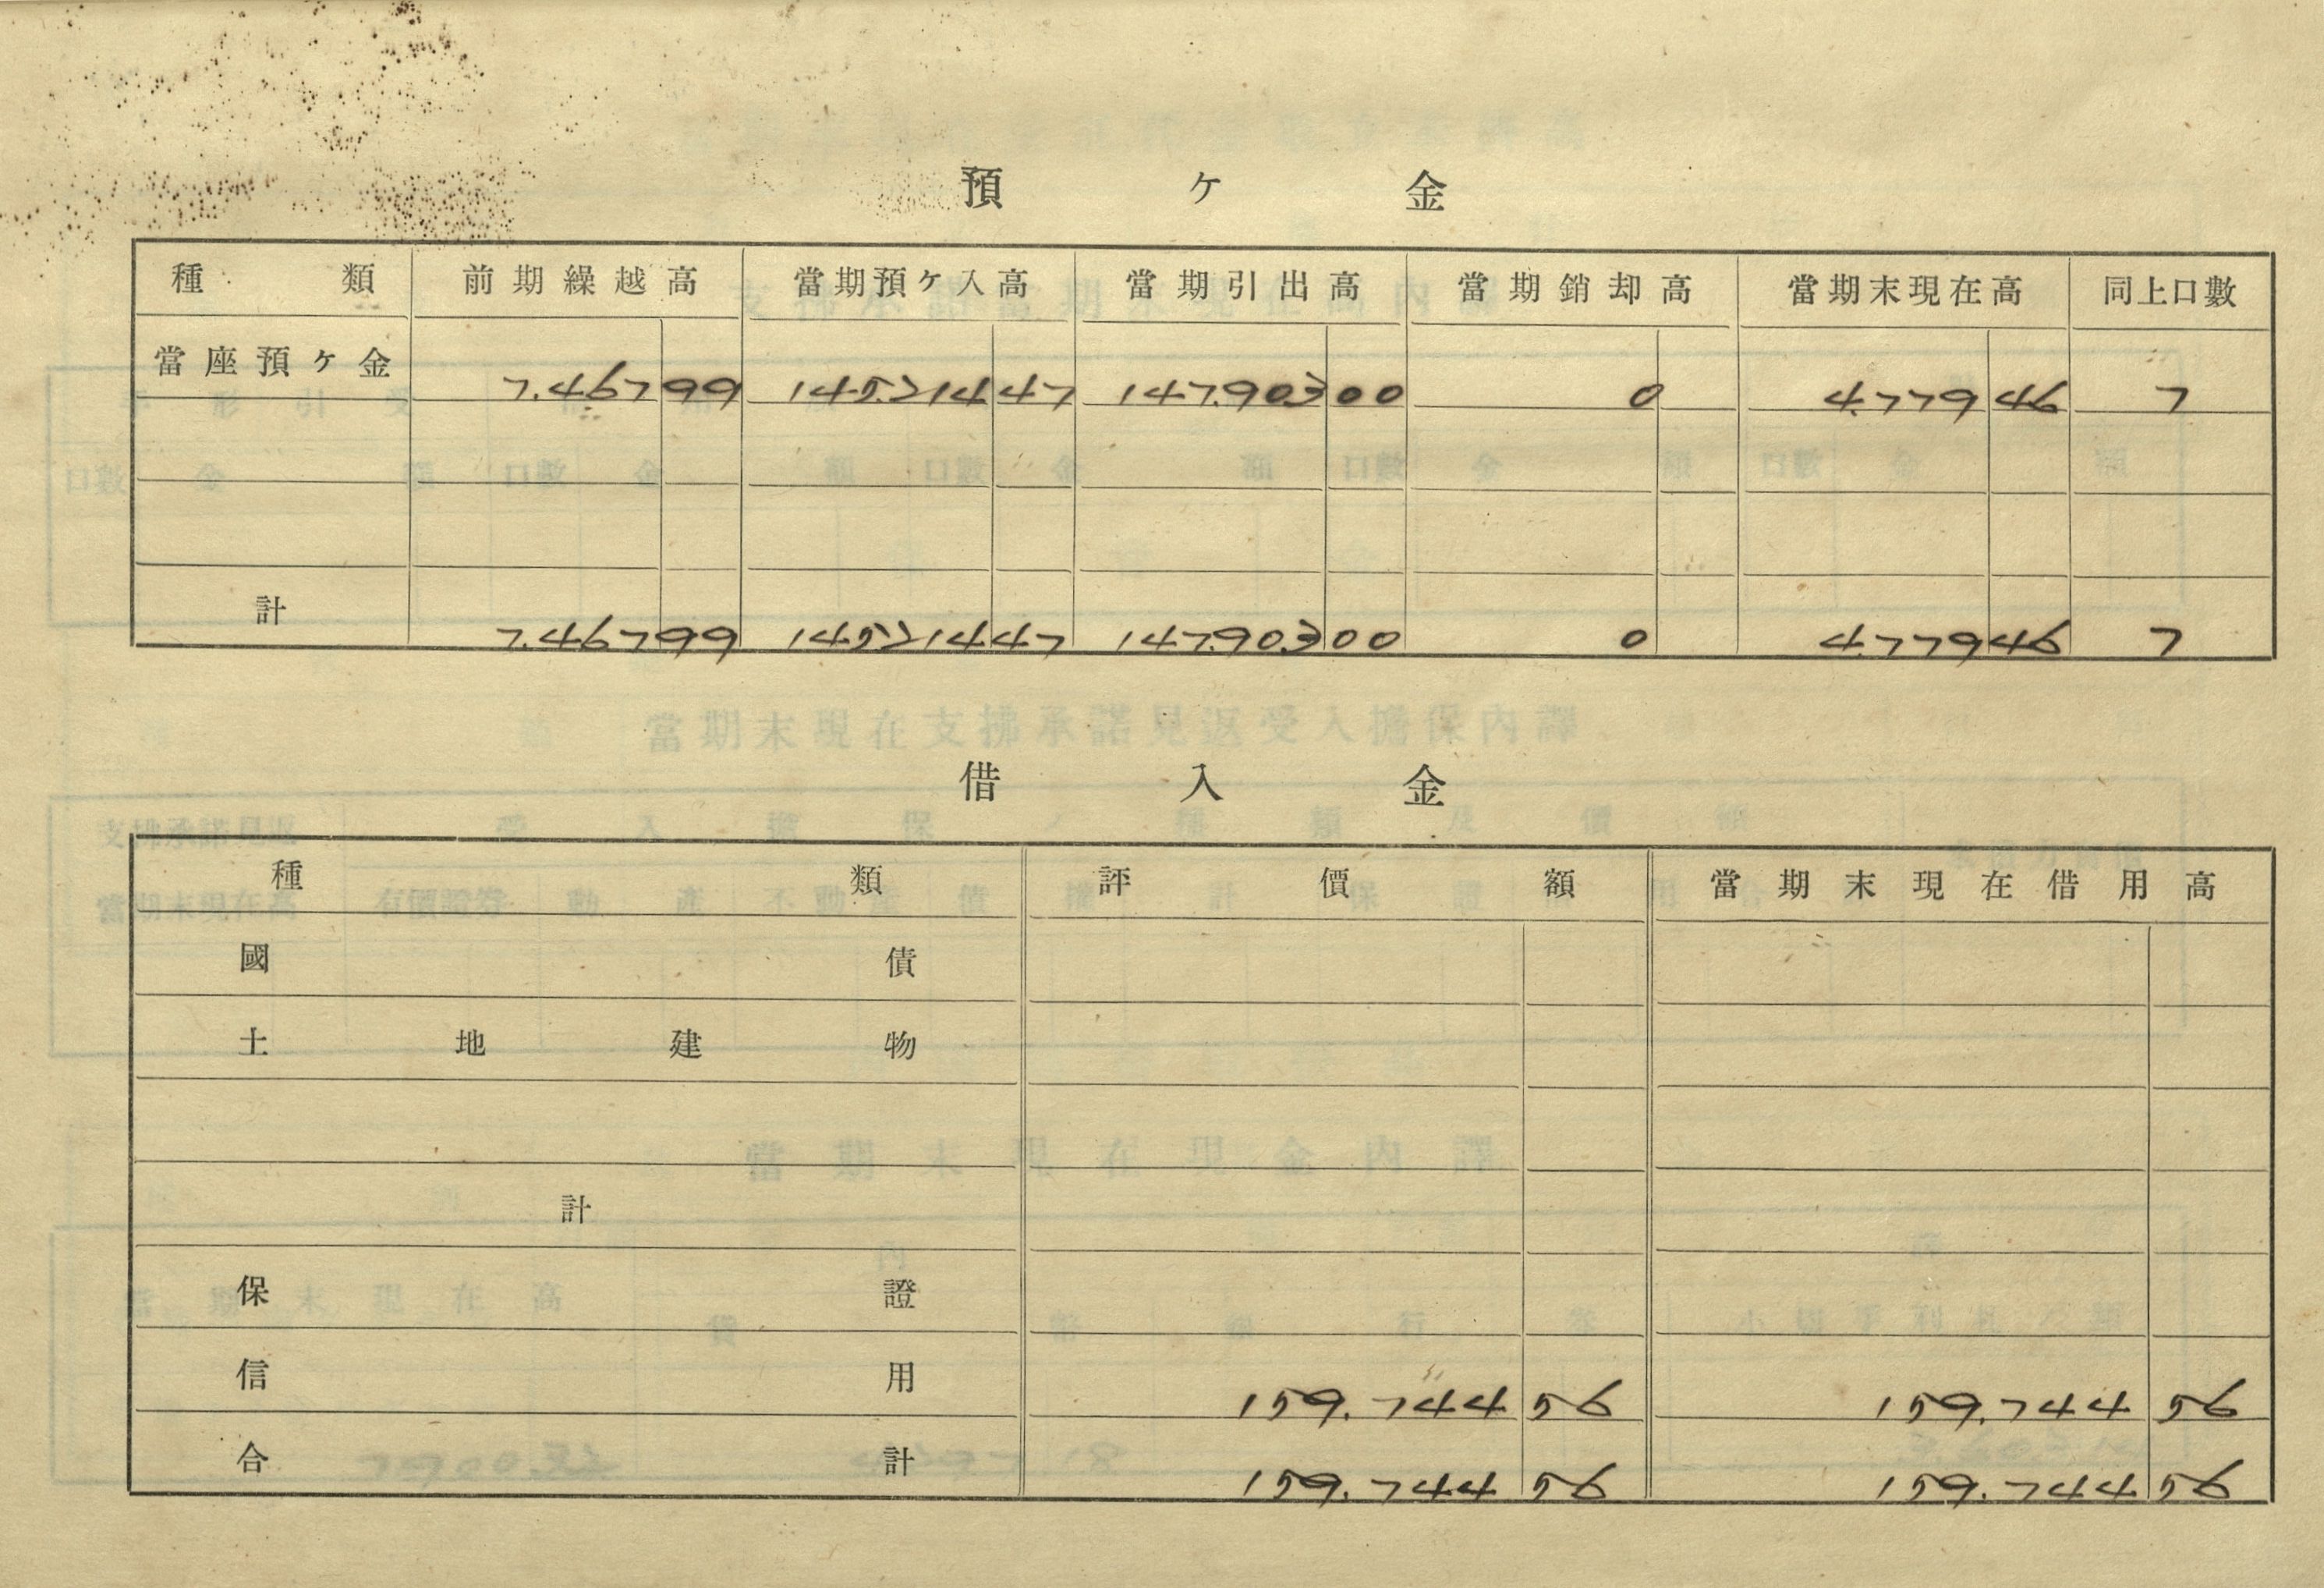 預ケ金
種類 前期繰越高 當期預ケ入高 當期引出高 當期銷却高 當期末現在高 同上口數
當座預ケ金 7.467 99 145.214 47 147.903 00 0 4.779 46 7
計 7.467 99 145.214 47 147.903 00 0 4.779 46 7
借入金
種類 評價額 當期末現在借用高
國債
土地建物
計
保證
信用 159.744 56 159.744 56
合計 159.744 56 159.744 56